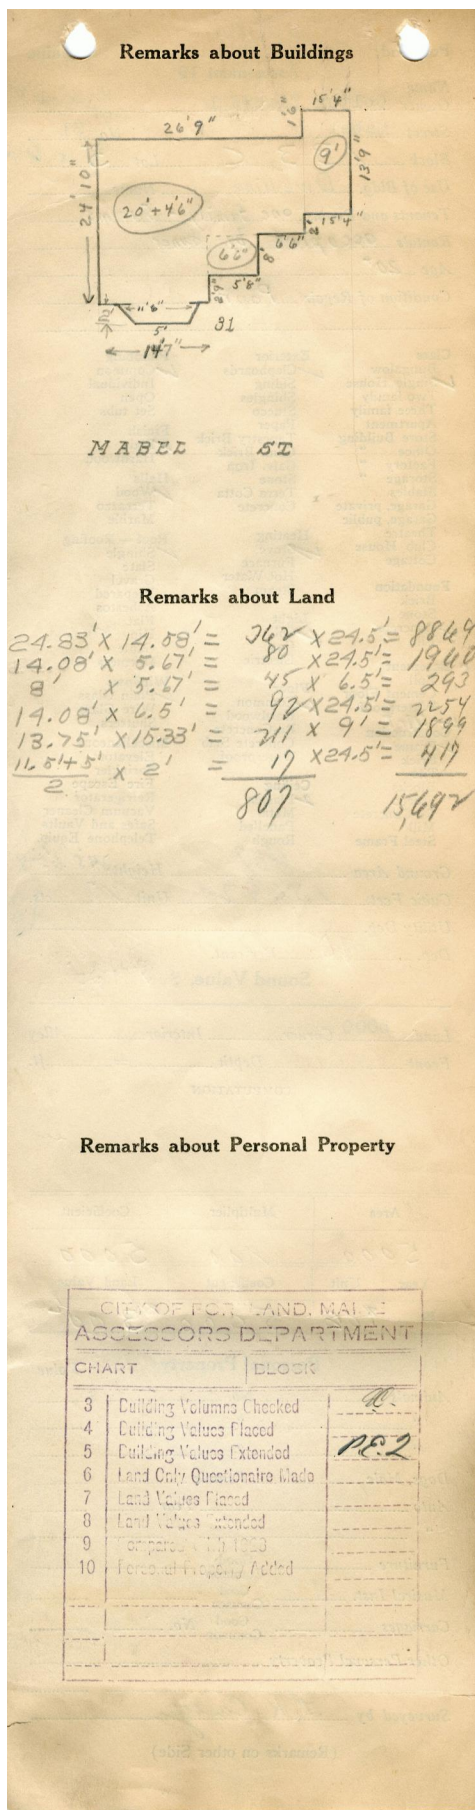 Remarks about Buildings
15'4"
1'6"
26'9"
9'
13'9"
24'10"
20'+4'6"
15'4"
6'6"
8'
6'6"
5'8"
11'8"
2'
5'
31
14'7"
MABEL ST
Remarks about Land
24.83' X 14.58' = 362 X 24.5' = 8869
14.08' X 5.67' = 80 X 24.5' = 1960
8' X 5.67' = 45 X 6.5' = 293
14.08' X 6.5' = 92 X 24.5' = 2254
13.75' X 15.33' = 211 X 9' = 1899
11.5'+5' / 2 X 2' = 17 X 24.5' = 417
807 15,692
Remarks about Personal Property
CITY OF PORTLAND, MAINE
ASSESSORS DEPARTMENT
CHART BLOCK
3 Building Volumns Checked
4 Building Values Placed
5 Building Values Extended P.E.2
6 Land Only Questionaire Made
7 Land Values Placed
8 Land Values Extended
9 Compared With 1923
10 Personal Property Added